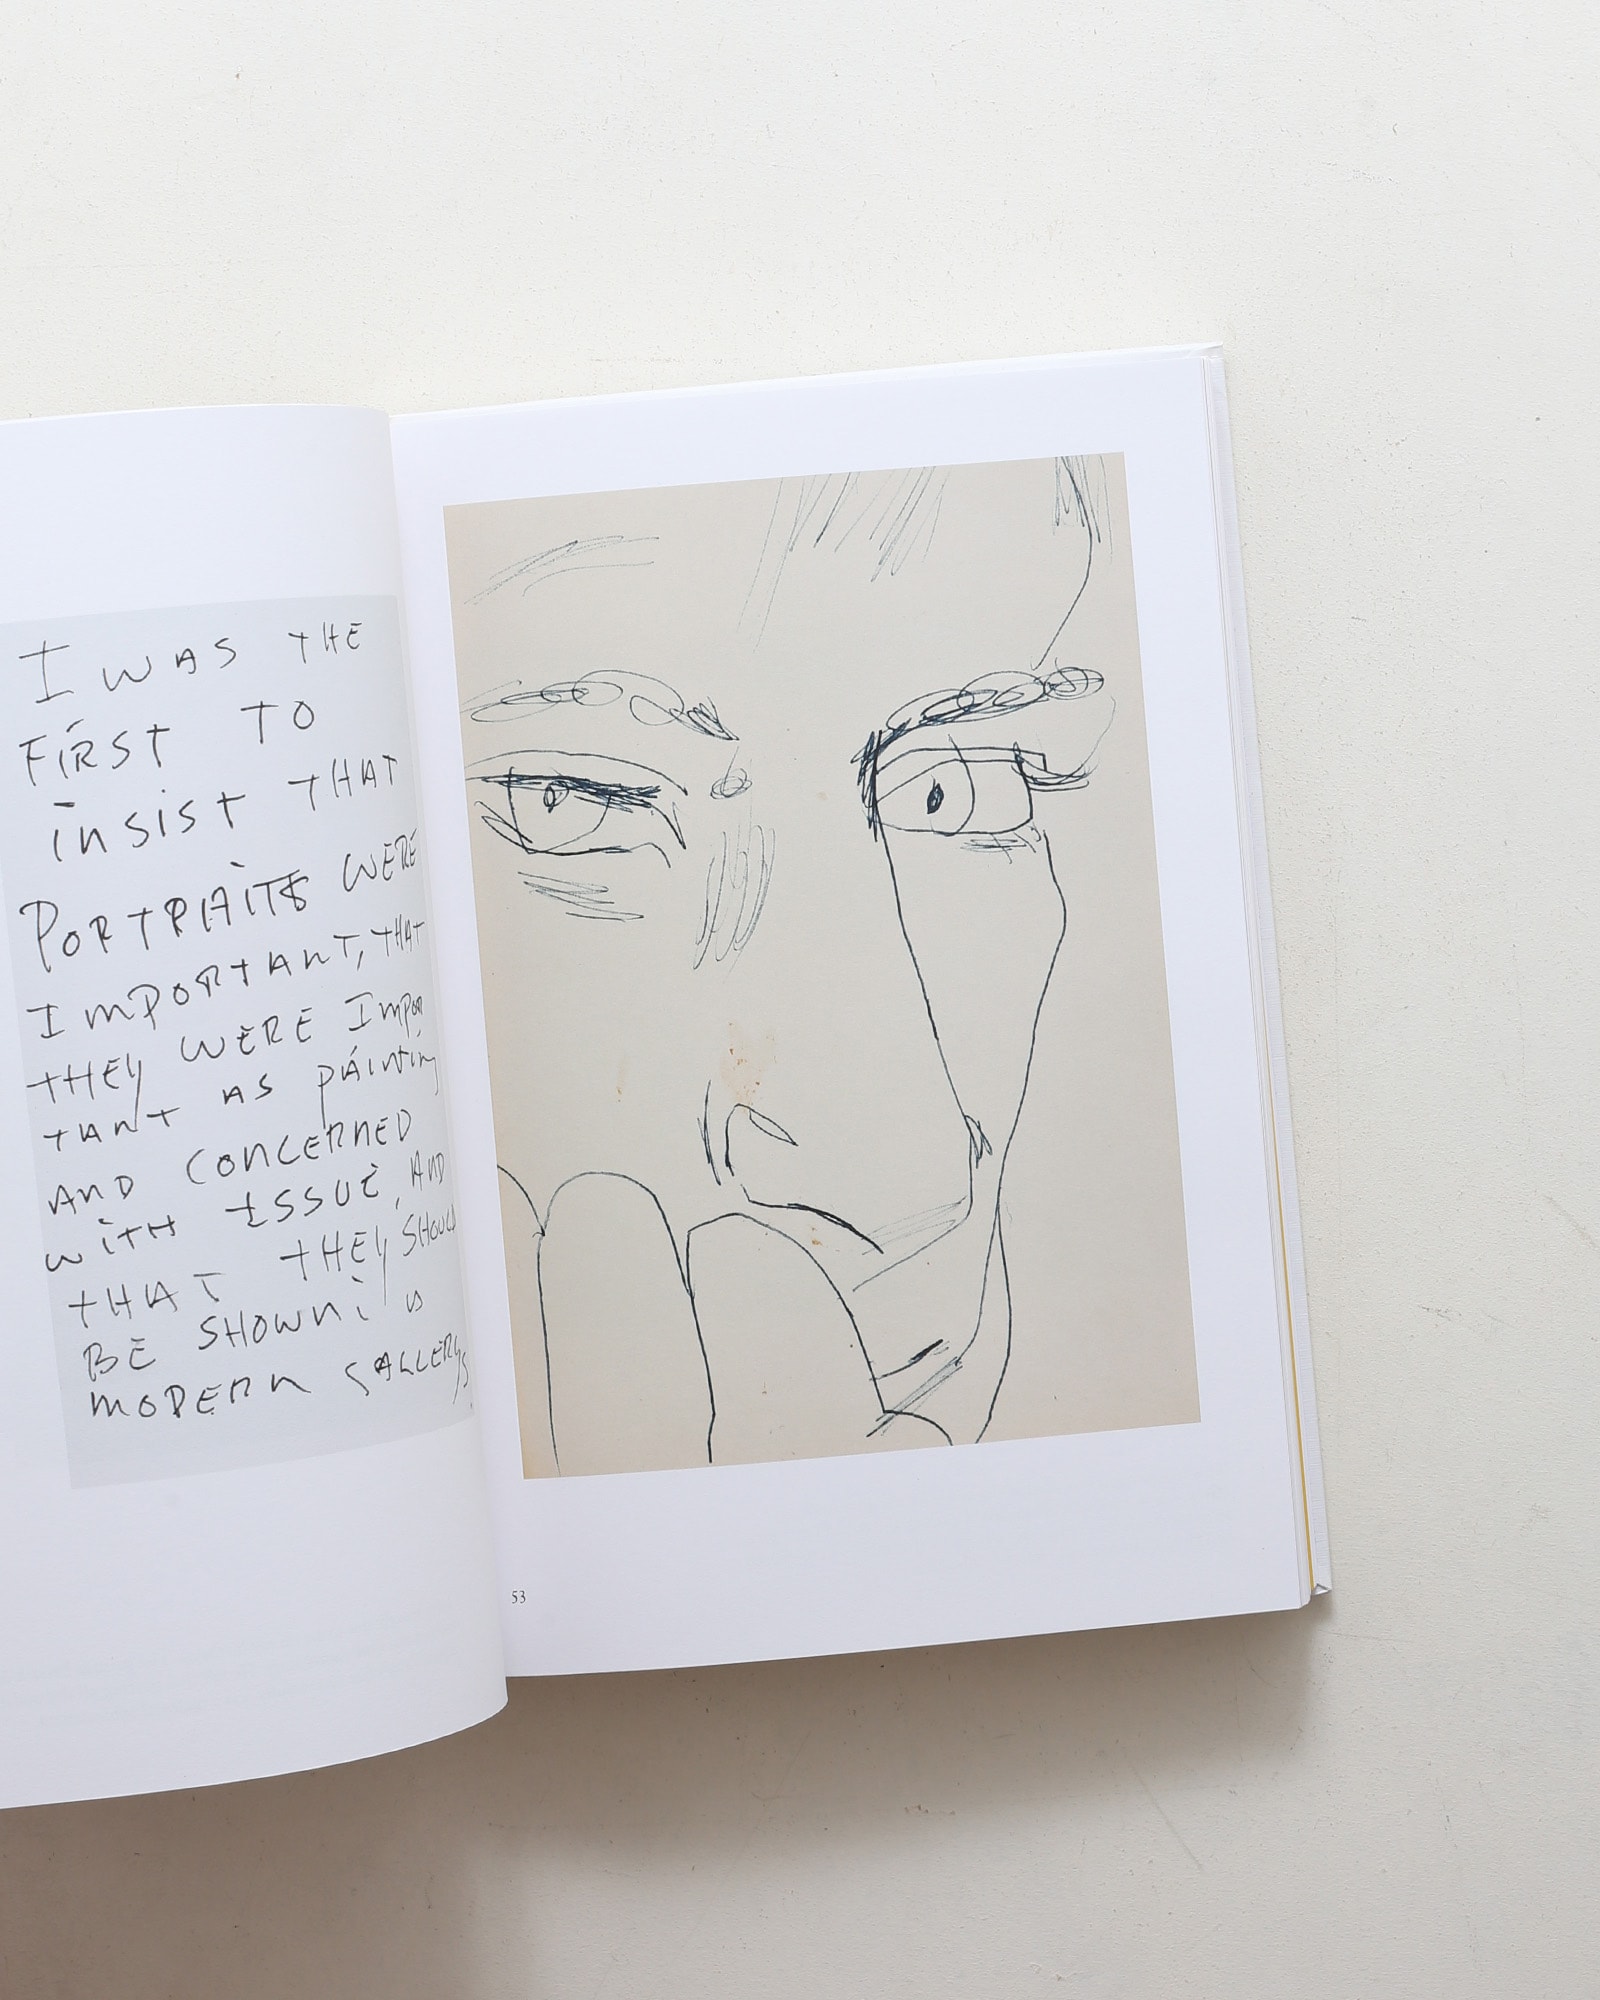 I WAS THE
FIRST TO
INSIST THAT
PORTRAITS WERE
IMPORTANT, THAT
THEY WERE IMPOR
TANT AS PAINTING
AND CONCERNED
WITH ISSUE, AND
THAT THEY SHOULD
BE SHOWN IN
MODERN GALLERYS
53